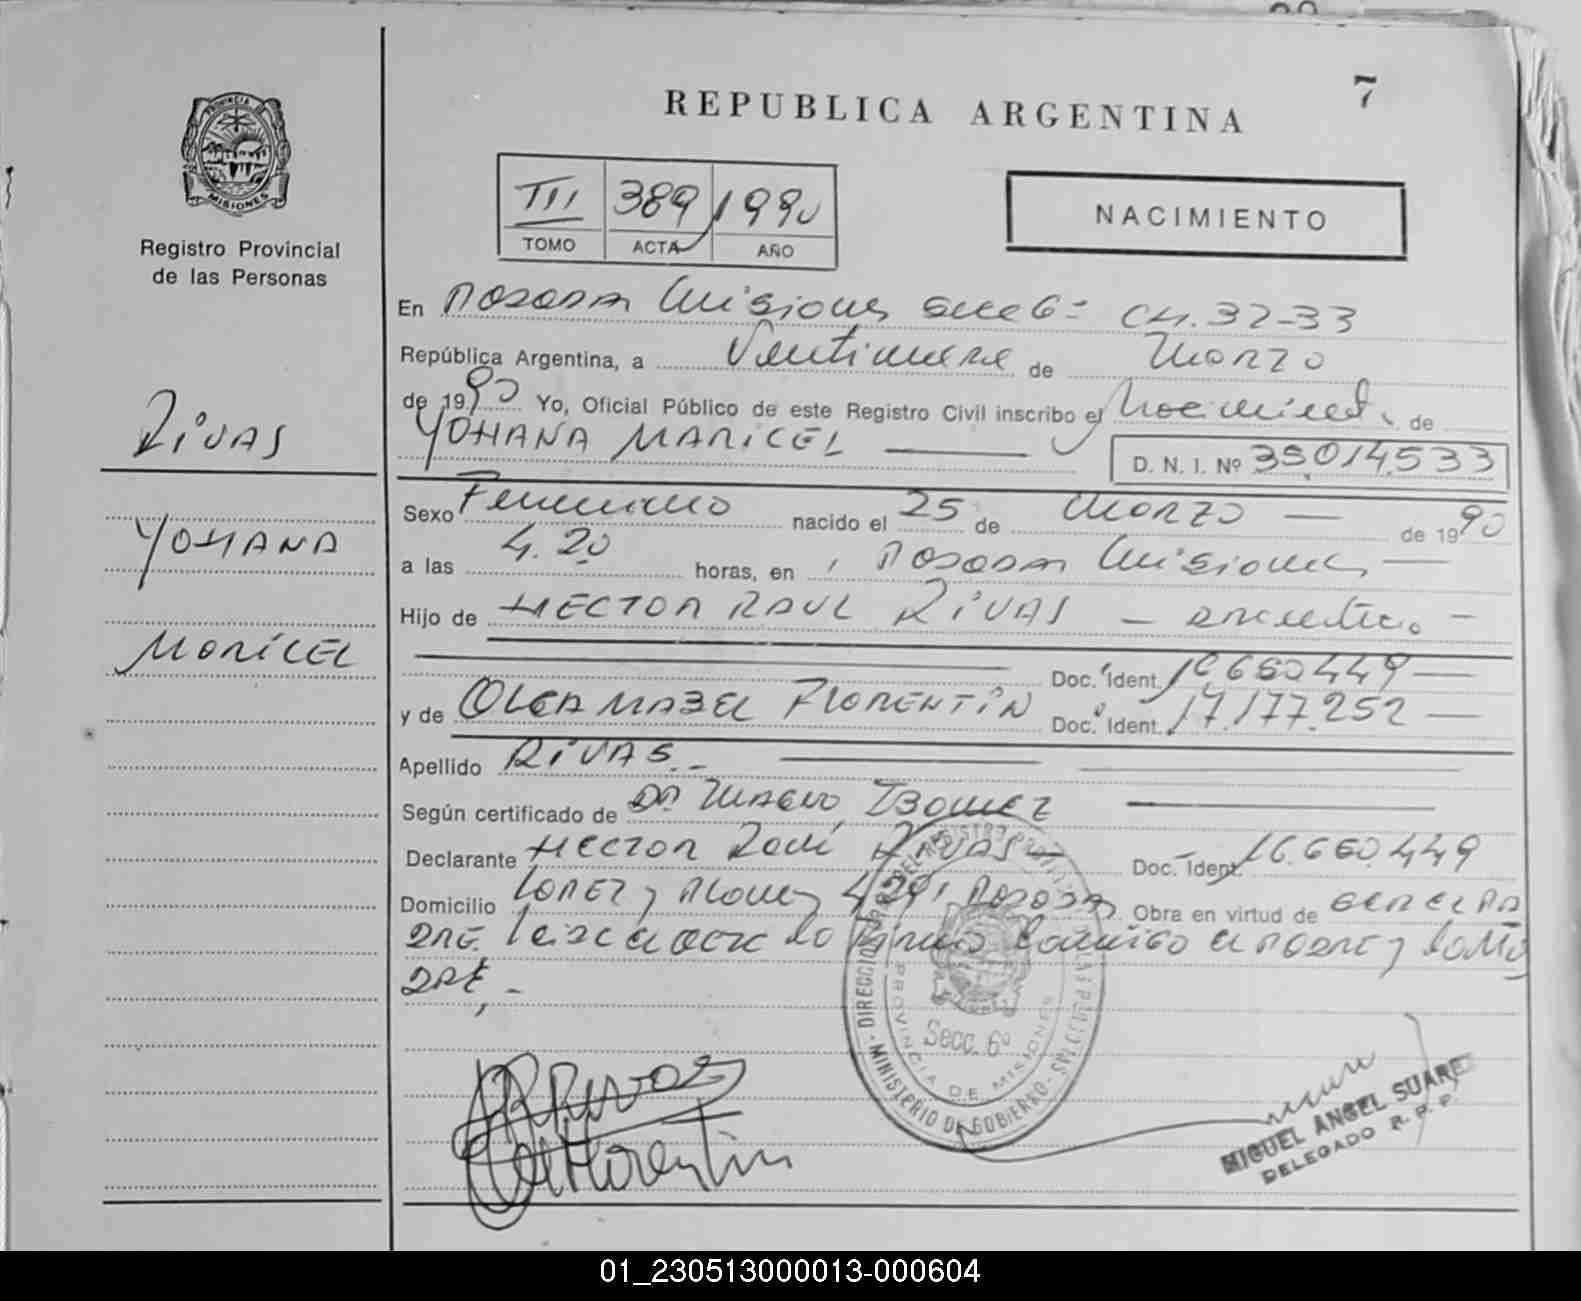 7
REPUBLICA ARGENTINA
PROVINCIA DE
MISIONES
Registro Provincial
de las Personas
TIII 389 1990
TOMO ACTA AÑO
NACIMIENTO
En Posadas Misiones Secc 6ª Ch. 32-33
República Argentina, a Veintinueve de Marzo
de 1990 Yo, Oficial Público de este Registro Civil inscribo el Nacimiento de
YOHANA MARICEL
D. N. I. Nº 35014533
RIVAS
YOHANA
MARICEL
Sexo Femenino nacido el 25 de Marzo de 1990
a las 4.20 horas, en Posadas Misiones
Hijo de HECTOR RAUL RIVAS — argentino —
Doc. Ident. 16660449
y de OLGA MABEL FLORENTÍN Doc. Ident. 17.177.252
Apellido RIVAS.-
Según certificado de
Declarante HECTOR Raúl RIVAS Doc. Ident. 16.660.449
Domicilio LOPEZ y Planes Posadas Obra en virtud de
Leida el acta la firma conmigo el padre y la Ma
dre,-
DIRECCION GRAL. DEL REGISTRO PROVINCIAL DE LAS PERSONAS
PROVINCIA DE MISIONES
Secc. 6º
- MINISTERIO DE GOBIERNO -
HRRivas
Florentin
MIGUEL ANGEL SUAREZ
DELEGADO R. P. P.
01_230513000013-000604